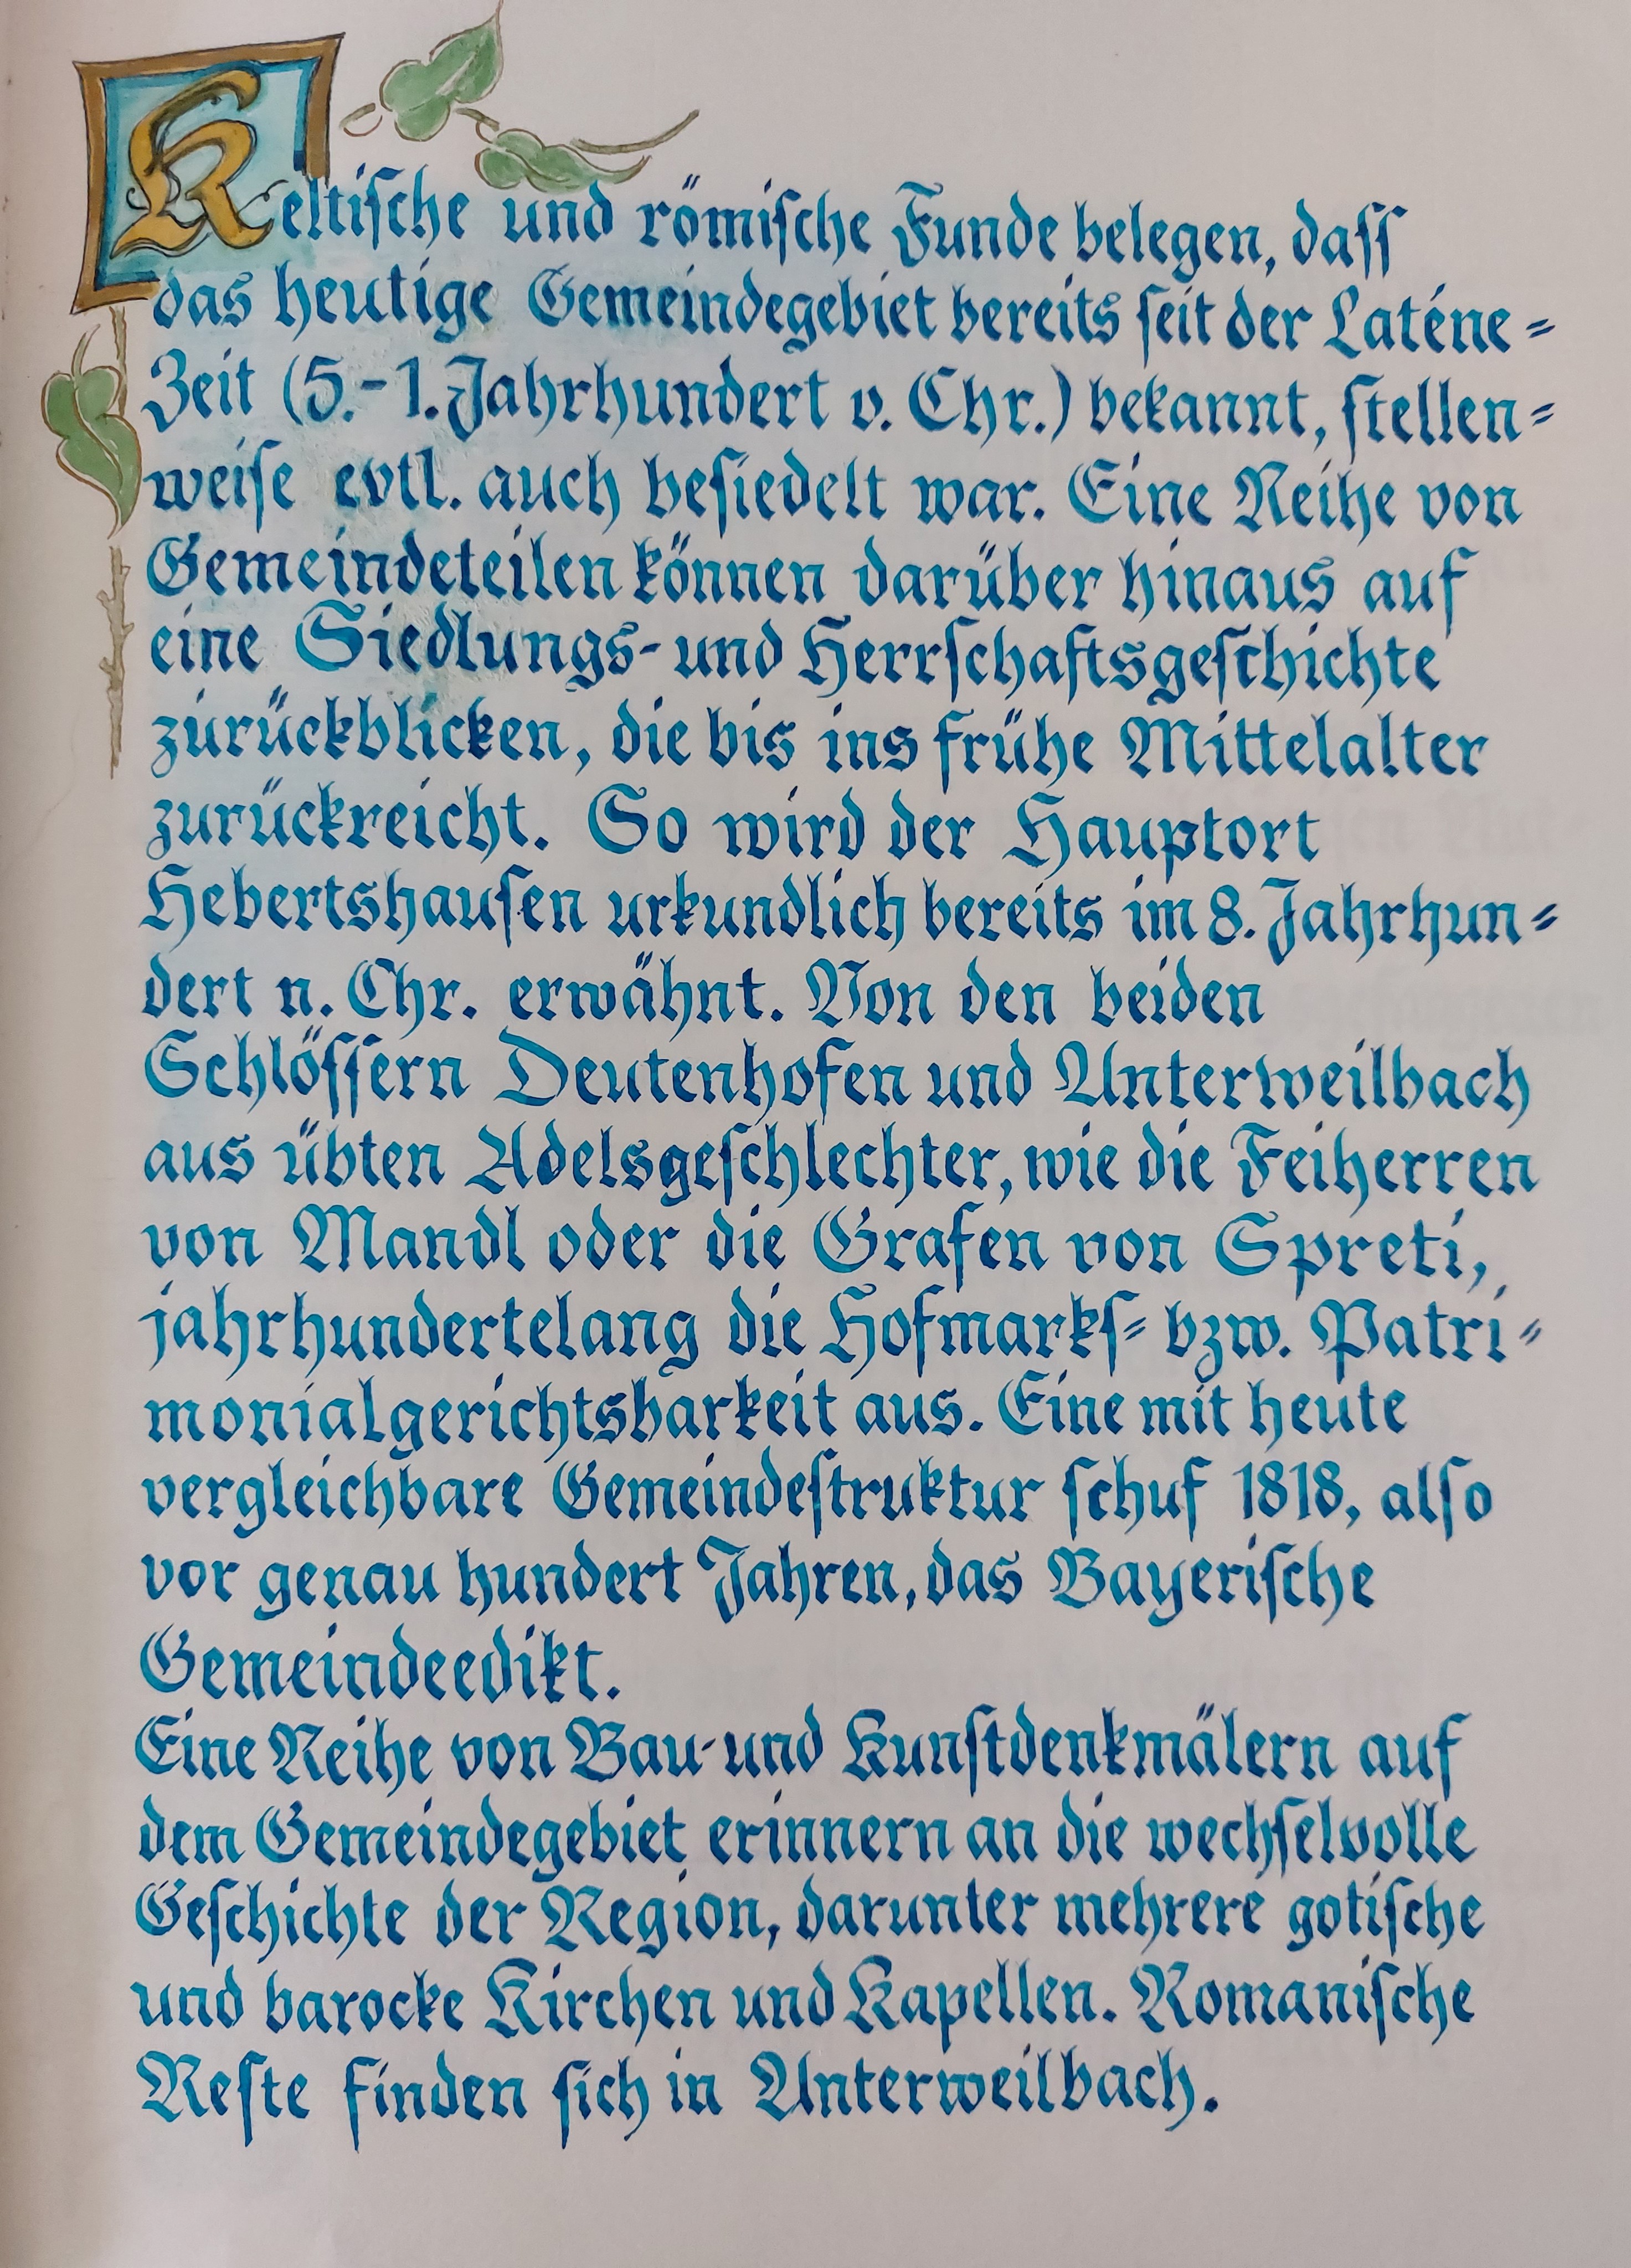 Keltiſche und römiſche Funde belegen, daſſ
das heutige Gemeindegebiet bereits ſeit der Laténe=
Zeit (5.-1. Jahrhundert v. Chr.) bekannt, ſtellen=
weiſe evtl. auch beſiedelt war. Eine Reihe von
Gemeindeteilen können darüber hinaus auf
eine Siedlungs- und Herrſchaftsgeſchichte
zurückblicken, die bis ins frühe Mittelalter
zurückreicht. So wird der Hauptort
Hebertshauſen urkundlich bereits im 8. Jahrhun=
dert n. Chr. erwähnt. Von den beiden
Schlöſſern Deutenhofen und Unterweilbach
aus übten Adelsgeſchlechter, wie die Feiherren
von Mandl oder die Grafen von Spreti,
jahrhundertelang die Hofmarkſ= bzw. Patri=
monialgerichtsbarkeit aus. Eine mit heute
vergleichbare Gemeindeſtruktur ſchuf 1818, alſo
vor genau hundert Jahren, das Bayeriſche
Gemeindeedikt.
Eine Reihe von Bau- und Kunſtdenkmälern auf
dem Gemeindegebiet erinnern an die wechſelvolle
Geſchichte der Region, darunter mehrere gotiſche
und barocke Kirchen und Kapellen. Romaniſche
Reſte finden ſich in Unterweilbach.